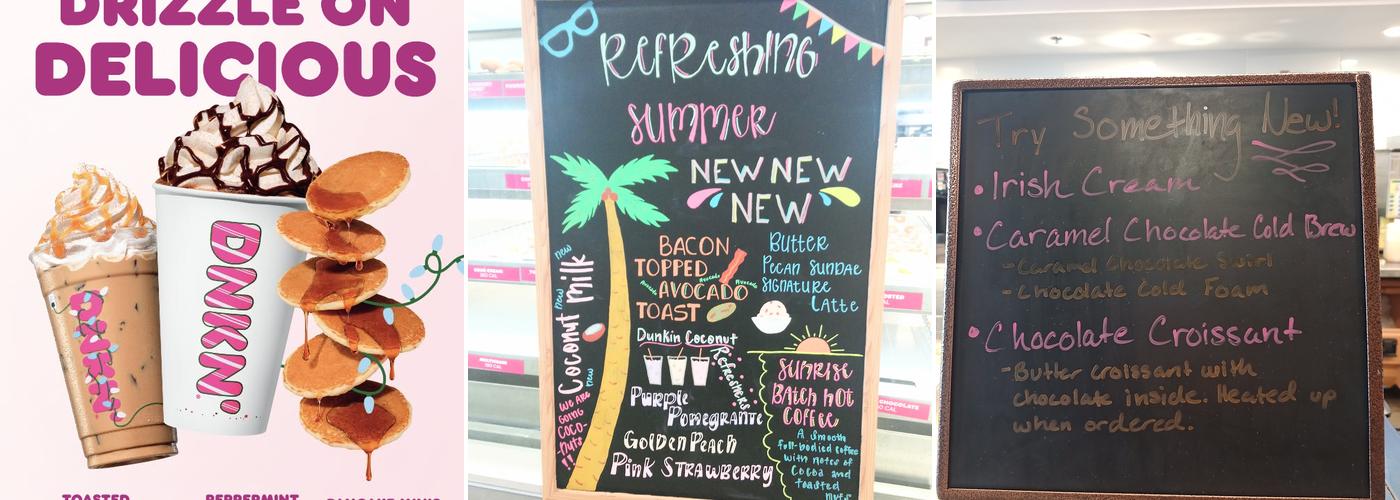 DRIZZLE ON
DELICIOUS
DUNKIN'
DNKN'
TOASTED
PEPPERMINT
PANCAKE MINIS
REFRESHING
SUMMER
NEW NEW
NEW
BACON
TOPPED
AVOCADO
TOAST
BUTTER
PECAN SUNDAE
SIGNATURE
LATTE
new
Coconut Milk
new
new
WE ARE
GOING
COCO-
nuts
!!
Dunkin Coconut
Refreshers
Purple
Pomegranite
Golden Peach
Pink STRAWBERRY
SUNRISE
BATCH HOT
COFFEE
A smooth
full-bodied coffee
with notes of
Cocoa and
toasted
nuts
Try Something New!
• Irish Cream
• Caramel Chocolate Cold Brew
- Caramel Chocolate Swirl
- Chocolate Cold Foam
• Chocolate Croissant
- Butter croissant with
chocolate inside. Heated up
when ordered.